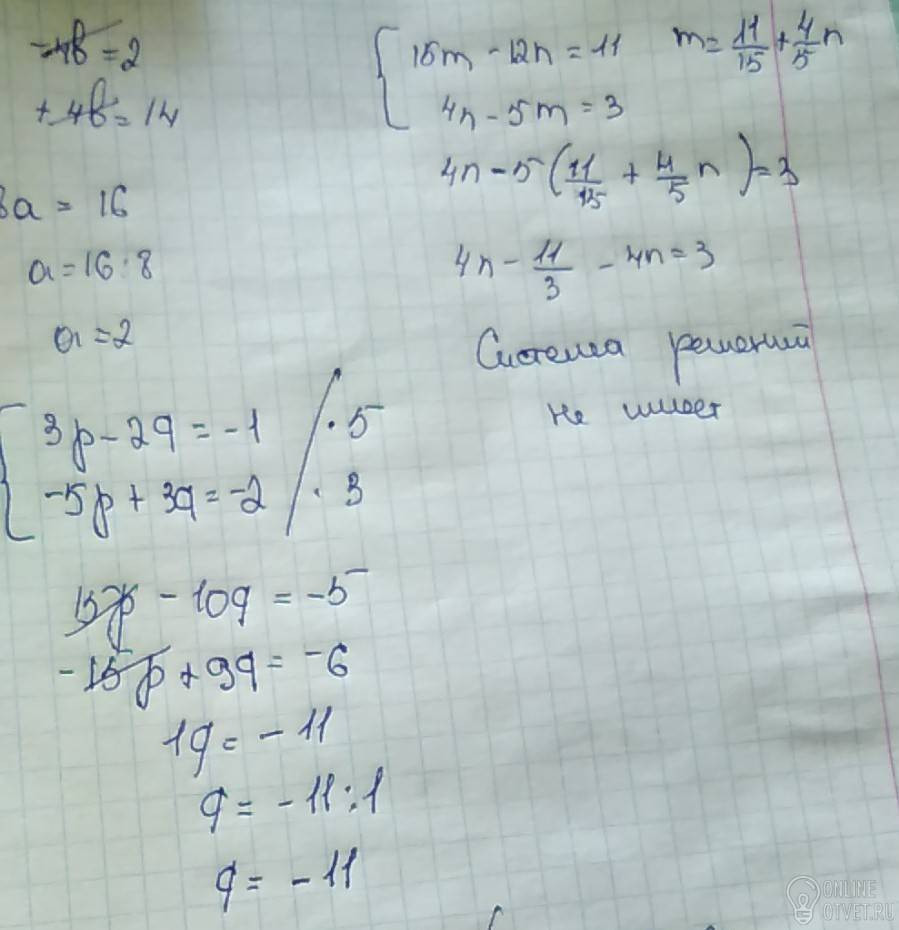 -4b = 2
+ 4b = 14
8a = 16
a = 16 : 8
a = 2
3p - 2q = -1 / · 5
-5p + 3q = -2 / · 3
15p - 10q = -5
-15p + 9q = -6
1q = - 11
q = - 11 : 1
q = - 11
15m - 12n = 11 m = 11/15 + 4/5 n
4n - 5m = 3
4n - 5 (11/15 + 4/5 n) = 3
4n - 11/3 - 4n = 3
Система решений
не имеет
ONLINE
OTVET.RU